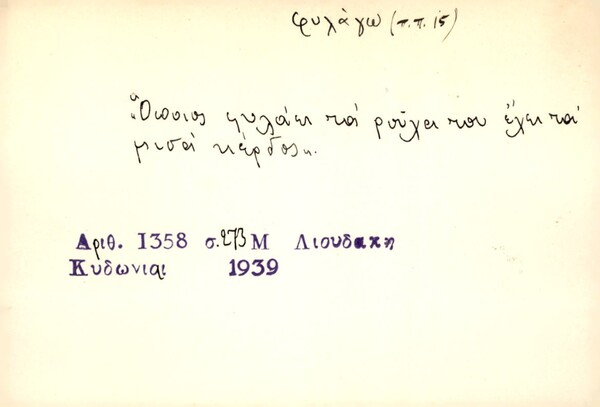 φυλάγω (π.π. 15)
"Όποιος φυλάει τά ροῦχα του ἔχει τά
μισά κέρδος".
Αριθ. 1358 σ. 273 Μ Λιουδακη
Κυδωνιαι 1939